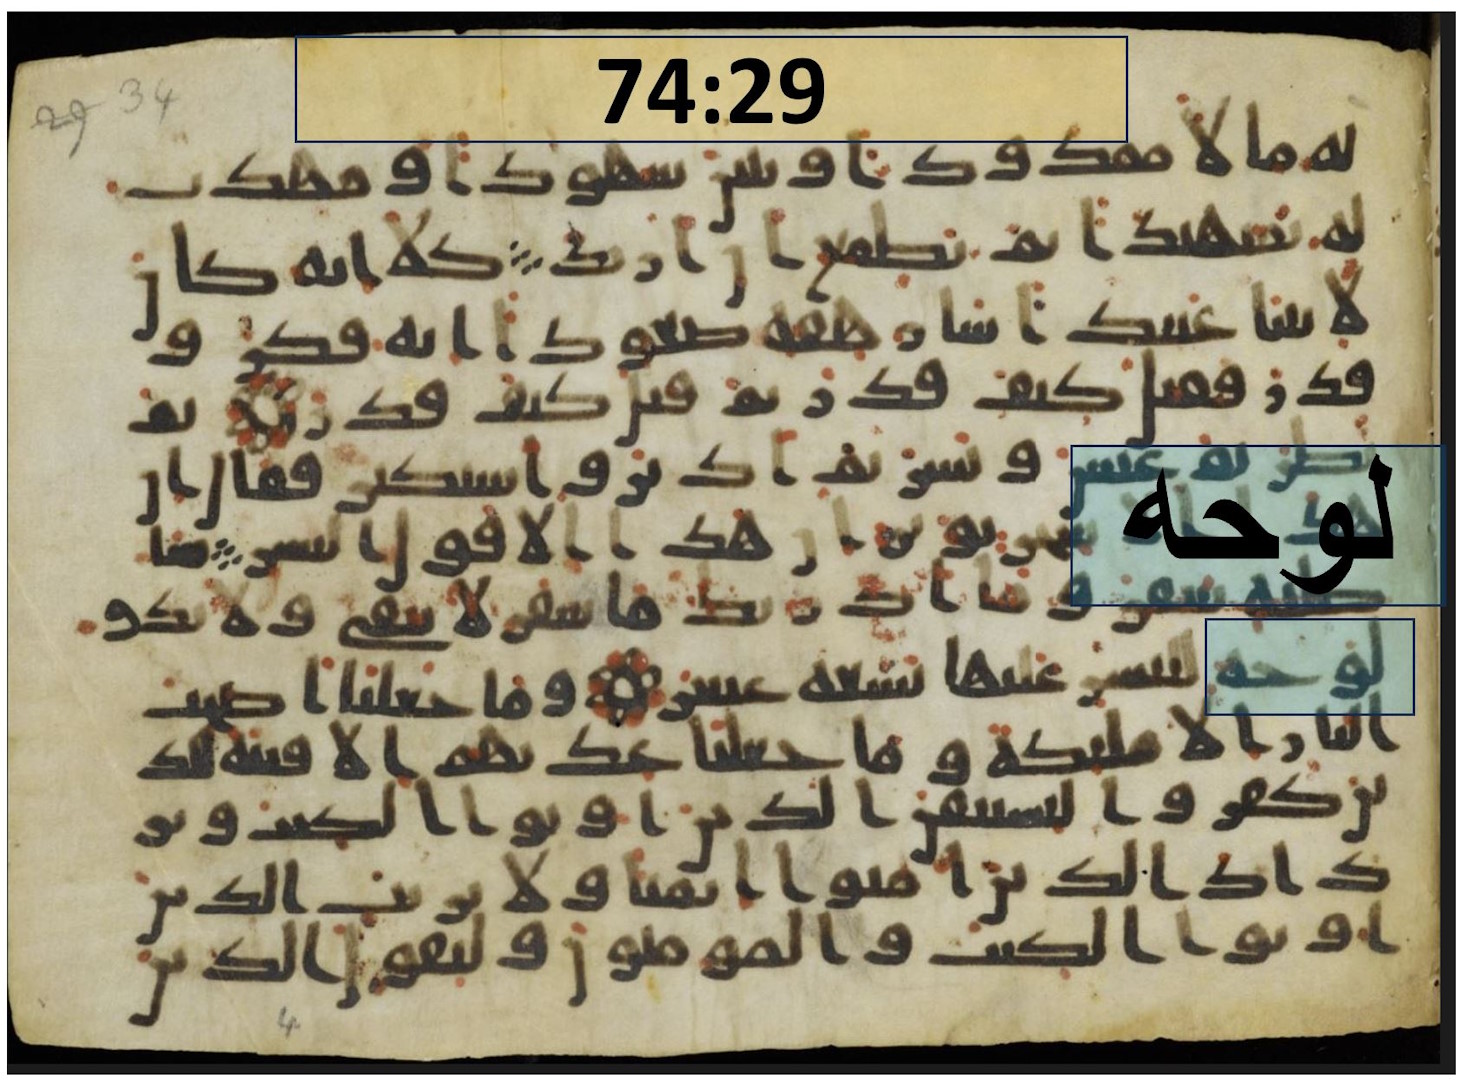 34
74:29
له مالا ممدودا وبنين شهودا ومهدت
له تمهيدا ثم يطمع ان ازيد كلا انه كان
لايتنا عنيدا سارهقه صعودا انه فكر و
قدر فقتل كيف قدر ثم قتل كيف قدر ثم
نظر ثم عبس وبسر ثم ادبر واستكبر فقال ان
لوحه
هذا الا سحر يوثر ان هذا الا قول البشر سا
صليه سقر وما ادريك ما سقر لا تبقي ولا تذر
لوحه للبشر عليها تسعه عشر وما جعلنا اصحب
النار الا مليكة وما جعلنا عدتهم الا فتنه للذ
ين كفروا ليستيقن الذين اوتوا الكتب ويز
داد الذين امنوا ايمنا ولا يرتب الذين
اوتوا الكتب والمومنون وليقول الذين